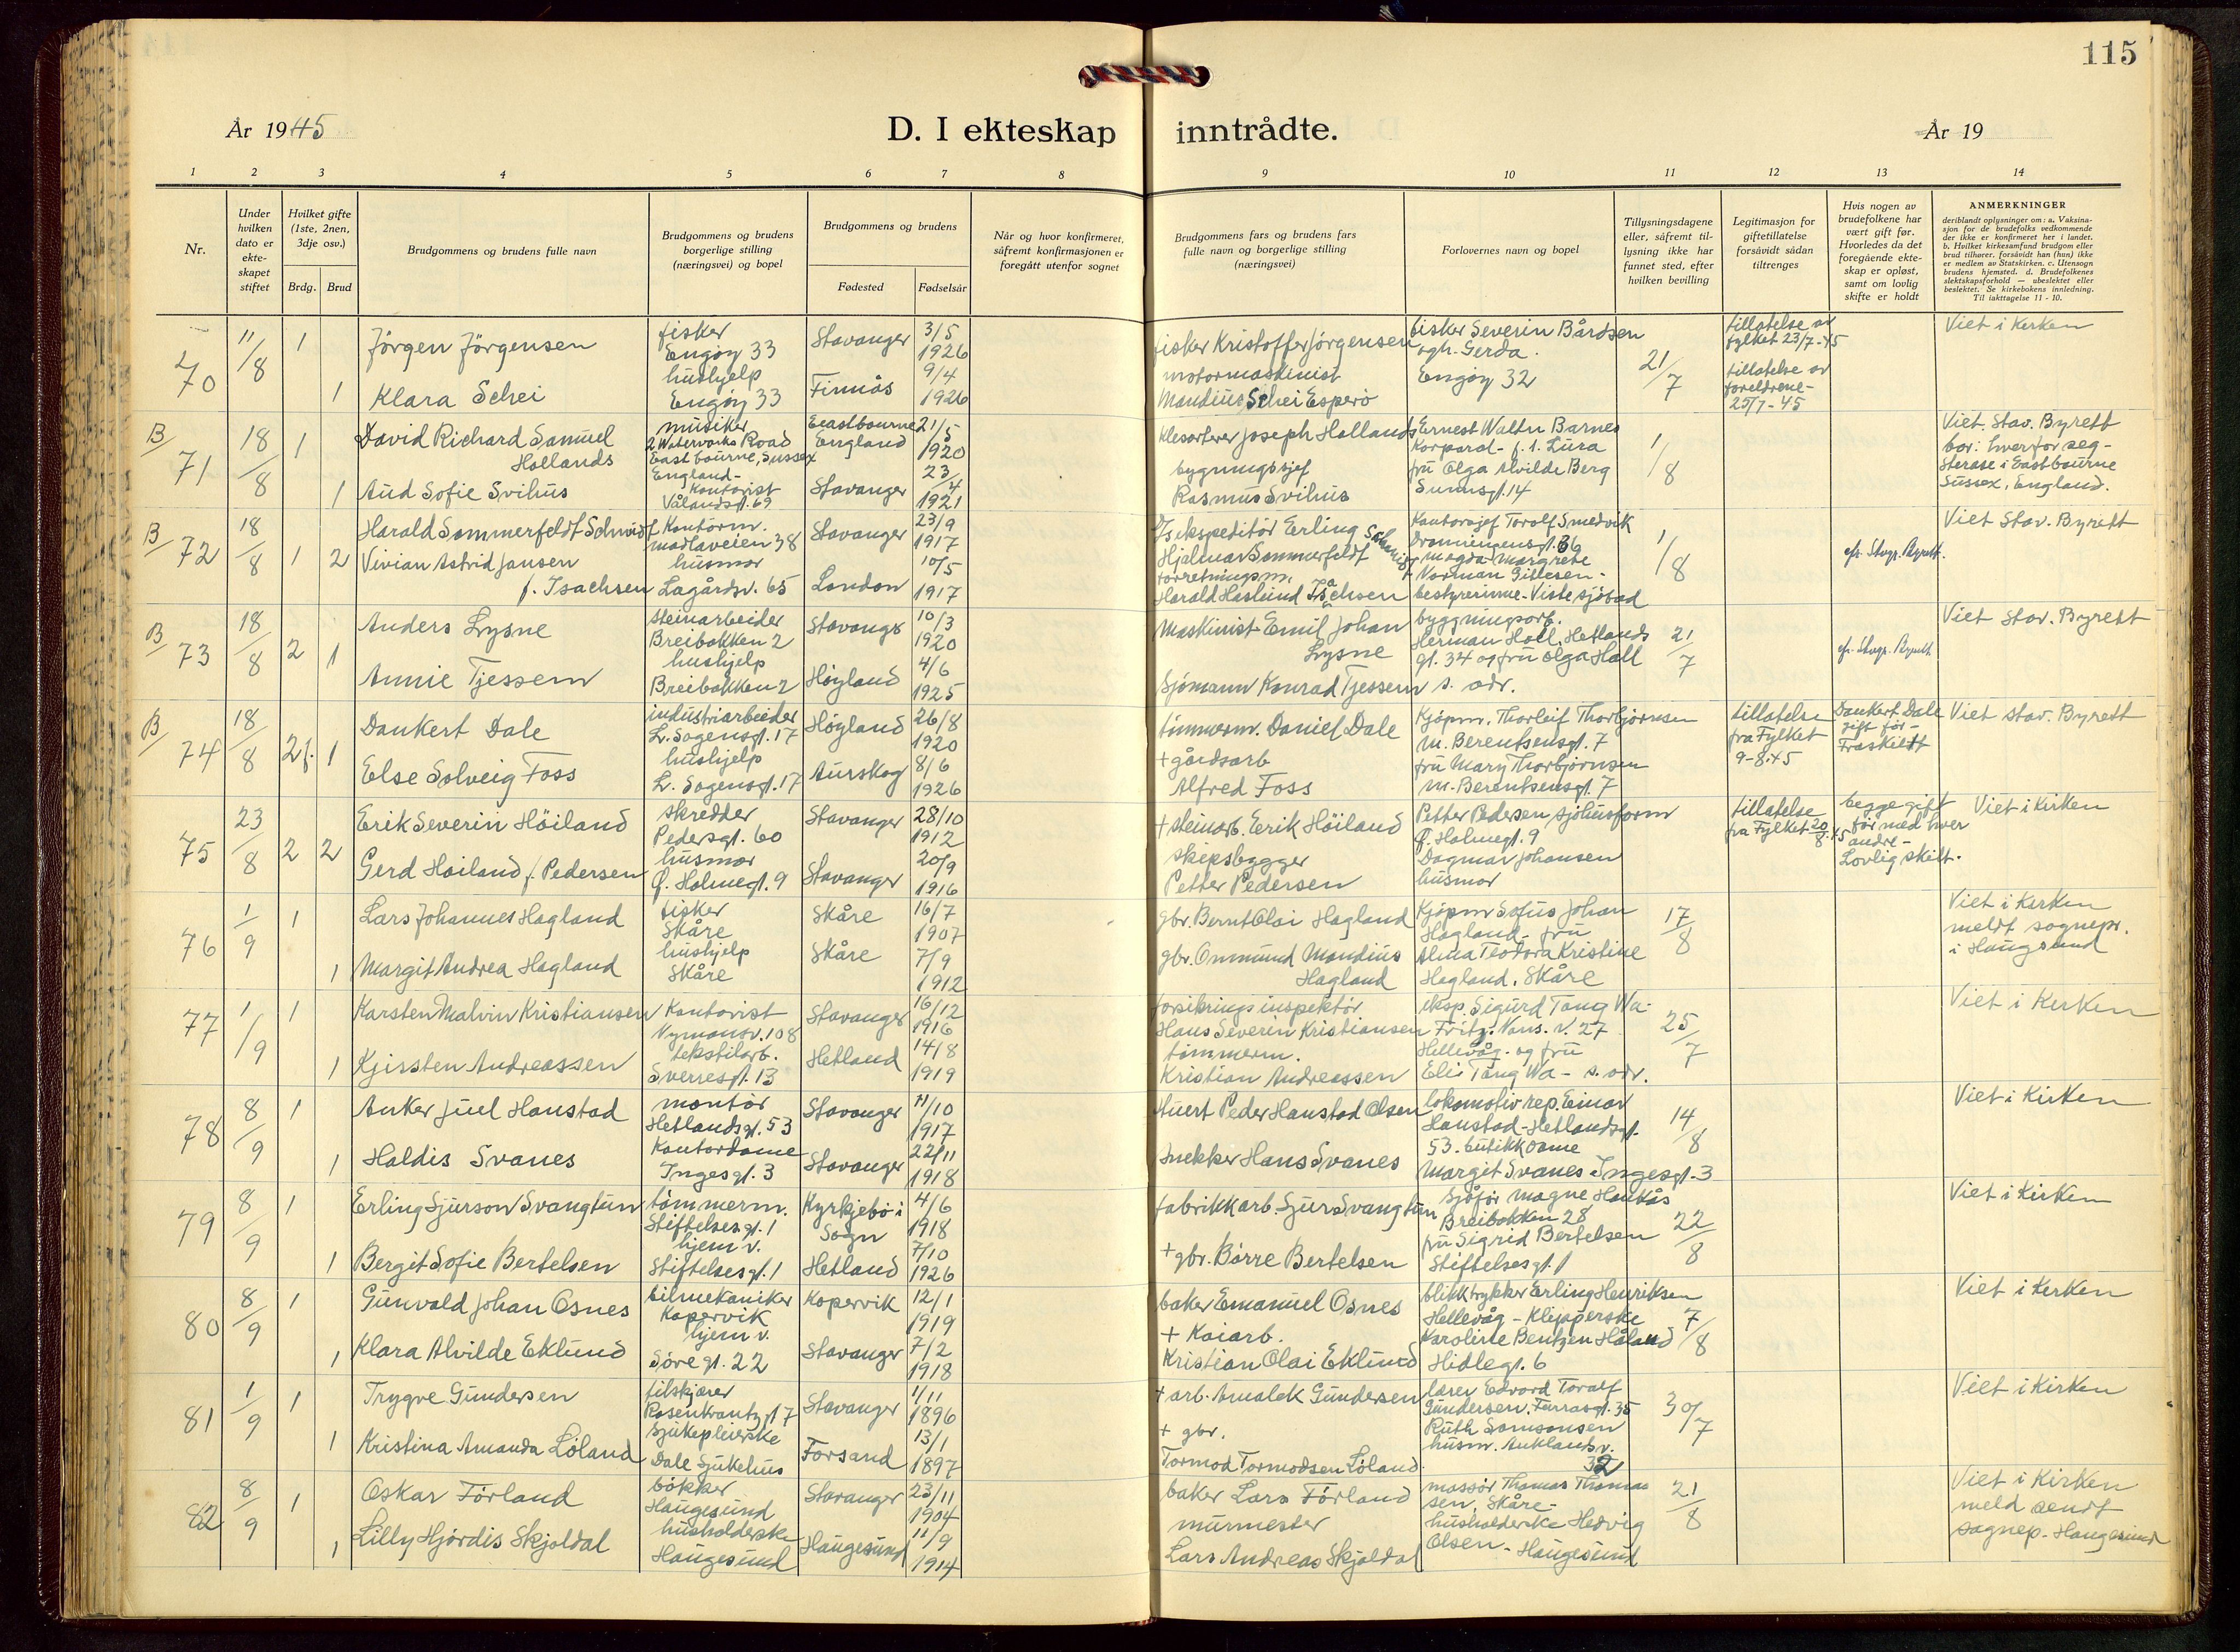 115
År 1945
D. I ekteskap inntrådte.
År 19
1 2 3 4 5 6 7 8 9 10 11 12 13 14
Nr.
Under hvilken dato er ekte-skapet stiftet
Hvilket gifte (1ste, 2nen, 3dje osv.)
Brdg.
Brud
Brudgommens og brudens fulle navn
Brudgommens og brudens borgerlige stilling (næringsvei) og bopel
Brudgommens og brudens
Fødested
Fødselsår
Når og hvor konfirmeret, såfremt konfirmasjonen er foregått utenfor sognet
Brudgommens fars og brudens fars fulle navn og borgerlige stilling (næringsvei)
Forlovernes navn og bopel
Tillysningsdagene eller, såfremt til-lysning ikke har funnet sted, efter hvilken bevilling
Legitimasjon for giftetillatelse forsåvidt sådan tiltrenges
Hvis nogen av brudefolkene har vært gift før. Hvorledes da det foregående ekte-skap er opløst, samt om lovlig skifte er holdt
ANMERKNINGER
deriblandt oplysninger om: a. Vaksina-sjon for de brudefolks vedkommende der ikke er konfirmeret her i landet. b. Hvilket kirkesamfund brudgom eller brud tilhører, forsåvidt han (hun) ikke er medlem av Statskirken. c. Utensogn brudens hjemsted. d. Brudefolkenes slektskapsforhold — ubeslektet eller beslektet. Se kirkebokens innledning. Til iakttagelse 11 - 10.
70
11/8
1
Jörgen Jörgensen
fisker
Engøy 33
Stavanger
3/5 1926
fisker Kristoffer Jörgensen
fisker Severin Bårdsen
ogh. Gerda.
Engöy 32
21/7
tillatelse av
fylket 23/7-45
Viet i Kirken
1
Klara Schei
hushjelp
Engøy 33
Finnås
9/4 1926
motormaskinist
Mandius Schei Esperö
tillatelse av
foreldrene-
25/7-45
B/
71
18/8
1
David Richard Samuel
Hollands
musiker
2 Waterworks Road
Eastbourne, Sussex
England-
Eeastbourne
England
21/5 1920
Joseph Hollands
Ernest Barnes
Korporal- f. 1. Lura
1/8
Viet. Stav. Byrett
Eastbourne
Sussex, England.
1
Aud Sofie Svihus
Kontorist
Vålandsgt. 69
Stavanger
23/4 1921
bygningssjef
Rasmus Svihus
fru Olga Alvilde Berg
B/
72
18/8
1
Harald Sommerfeldt Schmidt
Kontorm.
Madlaveien 38
Stavanger
23/9 1917
Erling
Hjalmar Sommerfeldt Schmidt
Kontorsjef Torolf Smedvik
Dronningensgt. 36
1/8
cfr. Stvgr. Byrett.
Viet Stav. Byrett
2
Vivian Astrid Jansen
f. Isachsen
husmor
Lagårdsv. 65
London
10/5 1917
forretningsm.
Harald Haslund Isachsen
Magda Margrete
bestyrerinne - Viste sjöbad
B/
73
18/8
2
Anders Lysne
steinarbeider
Breibakken 2
10/3 1920
Maskinist Emil Johan
Lysne
bygningsarb.
Herman Holl. Hetlands
gt. 34 og fru Olga Holl
s. adr.
21/7
cfr. Stvgr. Byrett.
Viet Stav. Byrett
1
Annie Tjessem
hushjelp
Breibakken 2
Höyland
4/6 1925
Sjömann Konrad Tjessem
B/
74
18/8
2 f.
Dankert Dale
industriarbeider
L. Sagensgt. 17
Höyland
26/8 1920
tömmerm. Daniel Dale
Kjöpm. Thorleif Thorbjörnsen
M. Berentsensgt. 7
tillatelse
fra Fylket
9-8-45
Dankert Dale
gift för -
Fraskilt
Viet Stav. Byrett
1
Else Solveig Foss
hushjelp
L. Sagensgt. 17
Aurskog
8/6 1926
+ gårdsarb
Alfred Foss
fru Mary Thorbjörnsen
M. Berentsensgt. 7
75
23/8
2
Erik Severin Höiland
skredder
Pedersgt. 60
Stavanger
28/10 1912
+ steinarb. Erik Höiland
Petter Pedersen sjöhusform
Q. Holmegt. 9
tillatelse
fra Fylket 20/8-45
begge gift
för med hver
andre -
Lovlig skilt.
Viet i Kirken
2
Gerd Höiland f. Pedersen
husmor
Q. Holmegt. 9
Stavanger
20/9 1916
skipsbygger
Petter Pedersen
Dagmar Johansen
husmor
76
1/9
1
Lars Johannes Hagland
fisker
Skåre
Skåre
16/7 1907
gbr. Bernt Olai Hagland
Kjöpm Sofus Johan
Hagland - fru
17/8
Viet i Kirken
meldt sognepr.
i Haugesund
1
Margit Andrea Hagland
hushjelp
Skåre
Skåre
7/9 1912
gbr. Ommund Mandius
Hagland
Alma Teodora Kristine
Hagland. Skåre
77
1/9
1
Karsten Malvin Kristiansen
Kontorist
Nymansv. 108
Stavanger
16/12 1916
Hans Severin Kristiansen
eksp. Sigurd Tang Wa-
Fritz. Nans. v. 27
25/7
Viet i Kirken
1
Kjissten Andreassen
tekstilarb.
Sverresgt. 13
Hetland
14/8 1919
tömmerm.
Kristian Andreassen
Hellevåg. og fru
Tang Wa - s. adr.
78
8/9
1
Anker Juel Hanstad
montör
Hetlandsgt. 53
Stavanger
11/10 1917
Peder Hanstad Olsen
lokomotivrep. Einar
Hanstad - Hetlandsgt.
53. butikkdame
14/8
Viet i Kirken
1
Haldis Svanes
Kontordame
Ingesgt. 3
Stavanger
22/11 1918
Snekker Hans Svanes
Margit Svanes Ingesgt. 3
79
8/9
1
Erling Sjurson Svangtun
tömmerm.
Stiftelsesgt. 1
Kyrkjebö i
Sogn
4/6 1918
fabrikkarb. Sjur Svangtun
Sjåför Magne Haukås
Breibakken 28
22/8
Viet i Kirken
1
Bergit Sofie Bertelsen
hjem v.
Stiftelsesgt. 1
Hetland
7/10 1926
+ gbr. Börre Bertelsen
fru Sigrid Bertelsen
Stiftelsesgt. 1
80
8/9
1
Gunvald Johan Osnes
bilmekaniker
Kopervik
Kopervik
12/1 1919
baker Emanuel Osnes
blikktrykker Erling Henriksen
Hellevåg - Klipperske
7/8
Viet i Kirken
1
Klara Alvilde Eklund
hjem v.
Söregt. 22
Stavanger
7/2 1918
+ Kaiarb.
Kristian Olai Eklund
Karoline Bentzen Håland
Hidlegt. 6
81
1/9
1
Trygve Gundersen
filskjærer
Rosenkrantzgt 7
Stavanger
1/11 1896
+ arb. Amalek Gundersen
lærer Edvard Toralf
Gundersen. Furrasgt. 35
30/7
Viet i Kirken
1
Kristina Amanda Löland
Sjukepleierske
Dale Sjukehus
Forsand
13/1 1897
+ gbr.
Tormod Tormodsen Löland
Ruth Samsonsen
husm. Auklandsv.
32
82
8/9
1
Oskar Förland
bökker
Haugesund
Stavanger
23/11 1904
baker Lars Förland
massör Thomas Thomas
sen, Skåre-
21/8
Viet i Kirken
meld sendt
sognep. Haugesund
1
Lilly Hjördis Skjoldal
husholderske
Haugesund
Haugesund
11/9 1914
murmester
Lars Andreas Skjoldal
husholderske Hedvig
Olsen - Haugesund